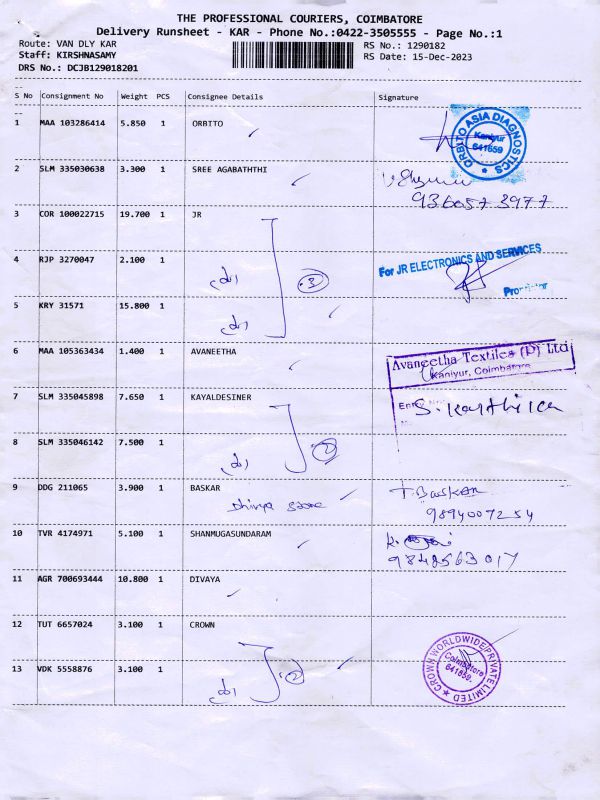 THE PROFESSIONAL COURIERS, COIMBATORE
Delivery Runsheet - KAR - Phone No.:0422-3505555 - Page No.:1
Route: VAN DLY KAR
RS No.: 1290182
Staff: KIRSHNASAMY
RS Date: 15-Dec-2023
DRS No.: DCJB129018201
S No Consignment No Weight PCS Consignee Details Signature
1 MAA 103286414 5.850 1 ORBITO
ORBITO ASIA DIAGNOSTICS
Kaniyur
641659
2 SLM 335030638 3.300 1 SREE AGABATHTHI
936057 3977
3 COR 100022715 19.700 1 JR
4 RJP 3270047 2.100 1
3
For JR ELECTRONICS AND SERVICES
Proprietor
5 KRY 31571 15.800 1
6 MAA 105363434 1.400 1 AVANEETHA
Avaneetha Textiles (P) Ltd
Kaniyur, Coimbatore
7 SLM 335045898 7.650 1 KAYALDESINER
Entry No
S. Karthika
8 SLM 335046142 7.500 1
2
9 DDG 211065 3.900 1 BASKAR
Dhivya store
T. Baskar
9894007254
10 TVR 4174971 5.100 1 SHANMUGASUNDARAM
9842563017
11 AGR 700693444 10.800 1 DIVAYA
12 TUT 6657024 3.100 1 CROWN
13 VDK 5558876 3.100 1
2
CROWN WORLDWIDE PRIVATE LIMITED
Coimbatore
641659.